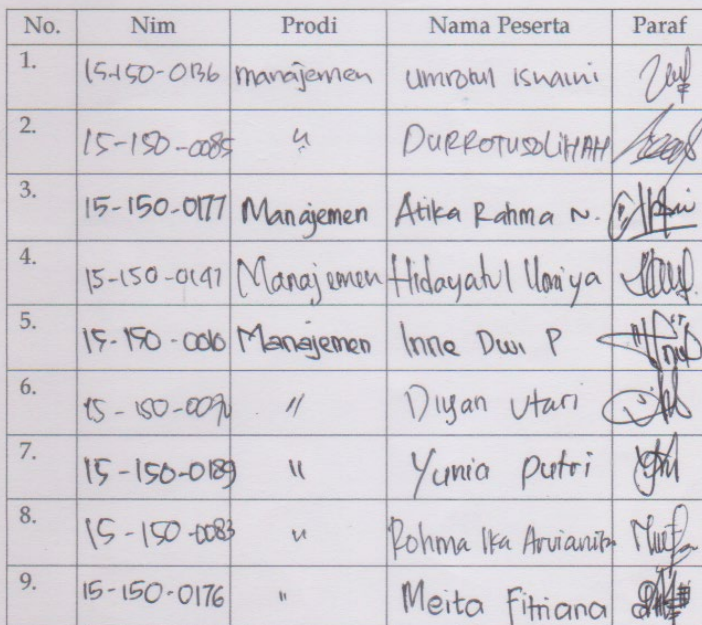 No. Nim Prodi Nama Peserta Paraf
1. 15-150-0136 manajemen Umrotul Isnaini
2. 15-150-0085 " DURROTUSOLIHAH
3. 15-150-0177 Manajemen Atika Rahma N.
4. 15-150-0147 Manajemen Hidayatul Umiya
5. 15-150-0010 Manajemen Inne Dwi P
6. " Diyan Utari
7. 15-150-0189 " Yunia Putri
8. 15-150-0083 " Rohma Ika
9. 15-150-0176 " Meita Fitriana